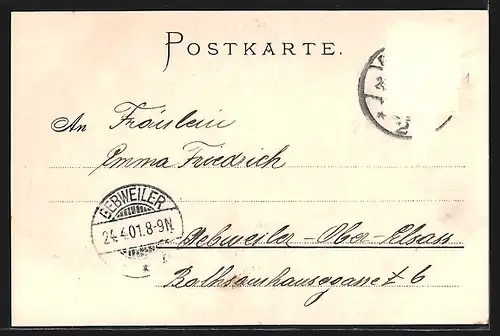 POSTKARTE.
An Fräulein
Emma Friedrich
GEBWEILER
24.4.01.8-9N
Gebweiler - Ober-Elsass
6